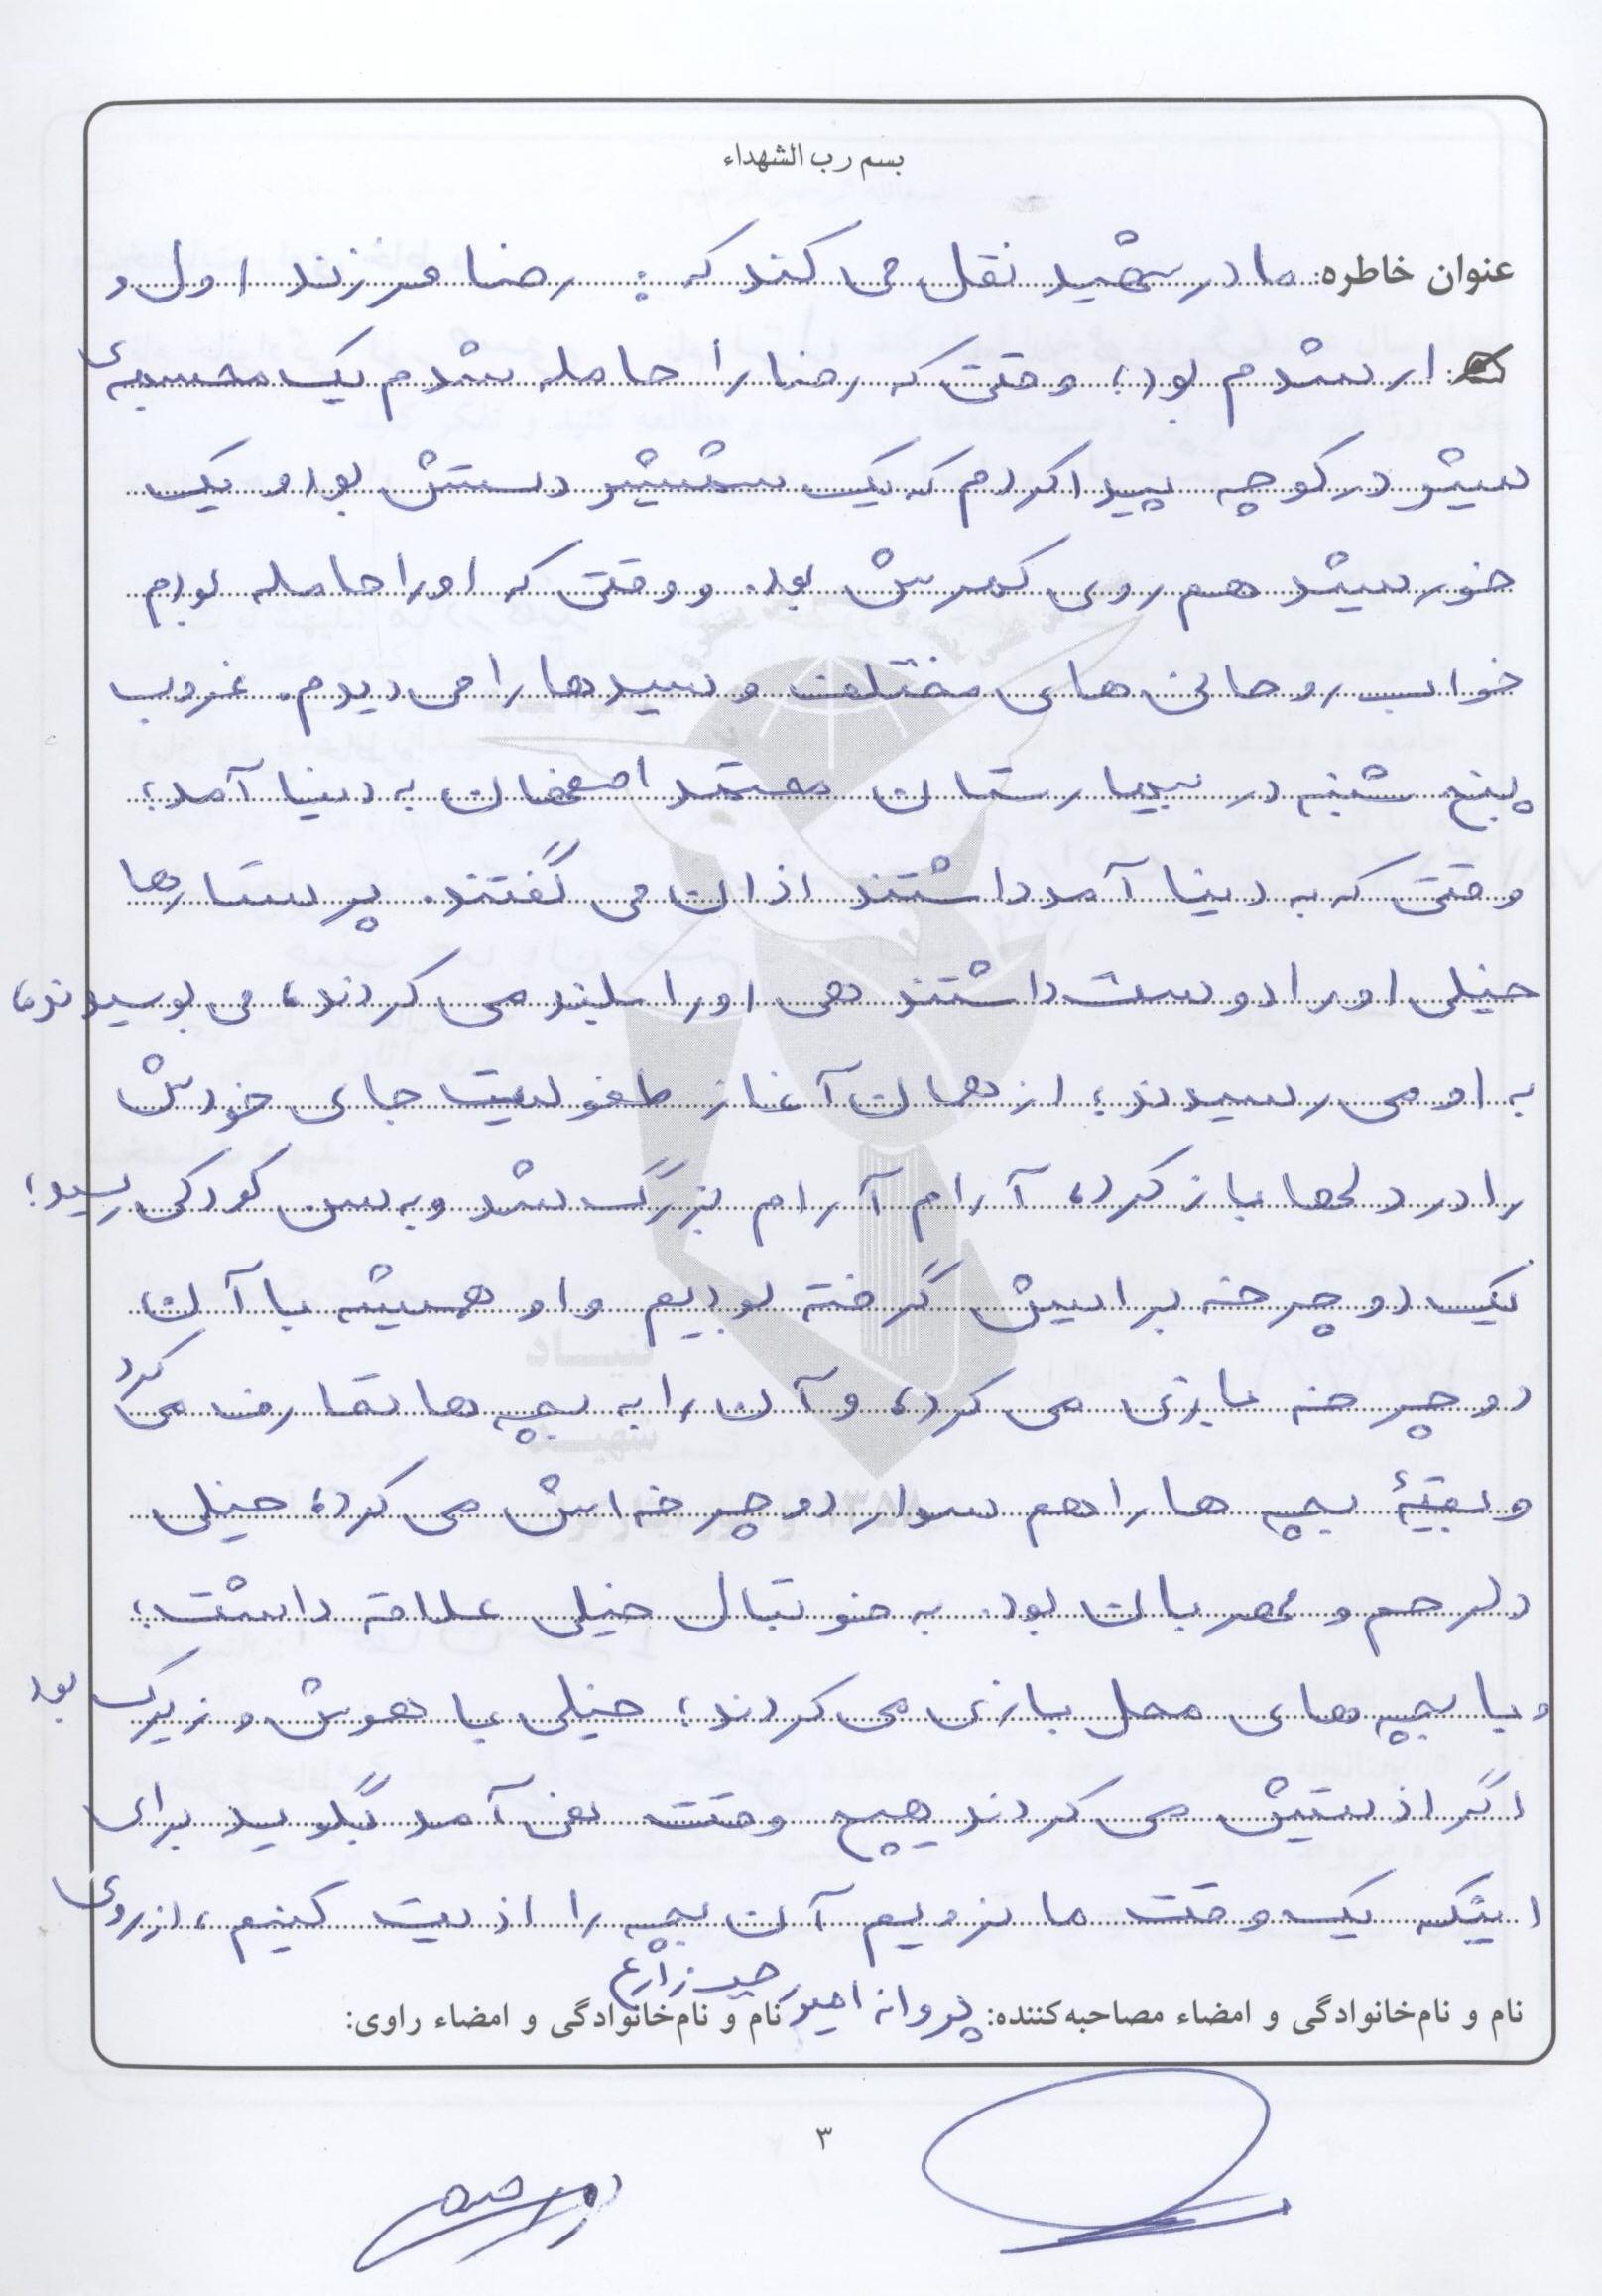 بسم رب الشهداء
عنوان خاطره: مادر شهید نقل می کند که : رضا فرزند اول و
ارشدم بود؛ وقتی که رضا را حامله شدم یک مجسمه‌ی
شیر در کوچه پیدا کردم که یک شمشیر دستش بود و یک
خورشید هم روی کمرش بود. و وقتی که او را حامله بودم
خواب روحانی های مختلف و سیدها را می دیدم. غروب
پنج شنبه در بیمارستان معتمد اصفهان به دنیا آمد؛
وقتی که به دینا آمد داشتند اذان می گفتند. پرستارها
خیلی او را دوست داشتند هی او را بلند می کردند، می بوسیدند،
به او می رسیدند؛ از همان آغاز طفولیت جای خودش
را در دلها باز کرد، آرام آرام بزرگ شد و به سن کودکی رسید؛
یک دوچرخه برایش گرفته بودیم و او همیشه با آن
دوچرخه بازی می کرد، و آن را به بچه ها تعارف می کرد
و بقیهٔ بچه ها را هم سوار دوچرخه اش می کرد، خیلی
دلرحم و مهربان بود. به فوتبال خیلی علاقه داشت؛
و با بچه های محل بازی می کردند؛ خیلی با هوش و زیرک بود
اگر اذیتش می کردند هیچ وقت نمی آمد بگوید برای
اینکه یک وقت ما نرویم آن بچه را اذیت کنیم، از روی
نام و نام‌خانوادگی و امضاء مصاحبه‌کننده: پروانه امیر نام و نام‌خانوادگی و امضاء راوی:
بنیاد
شهید
۳